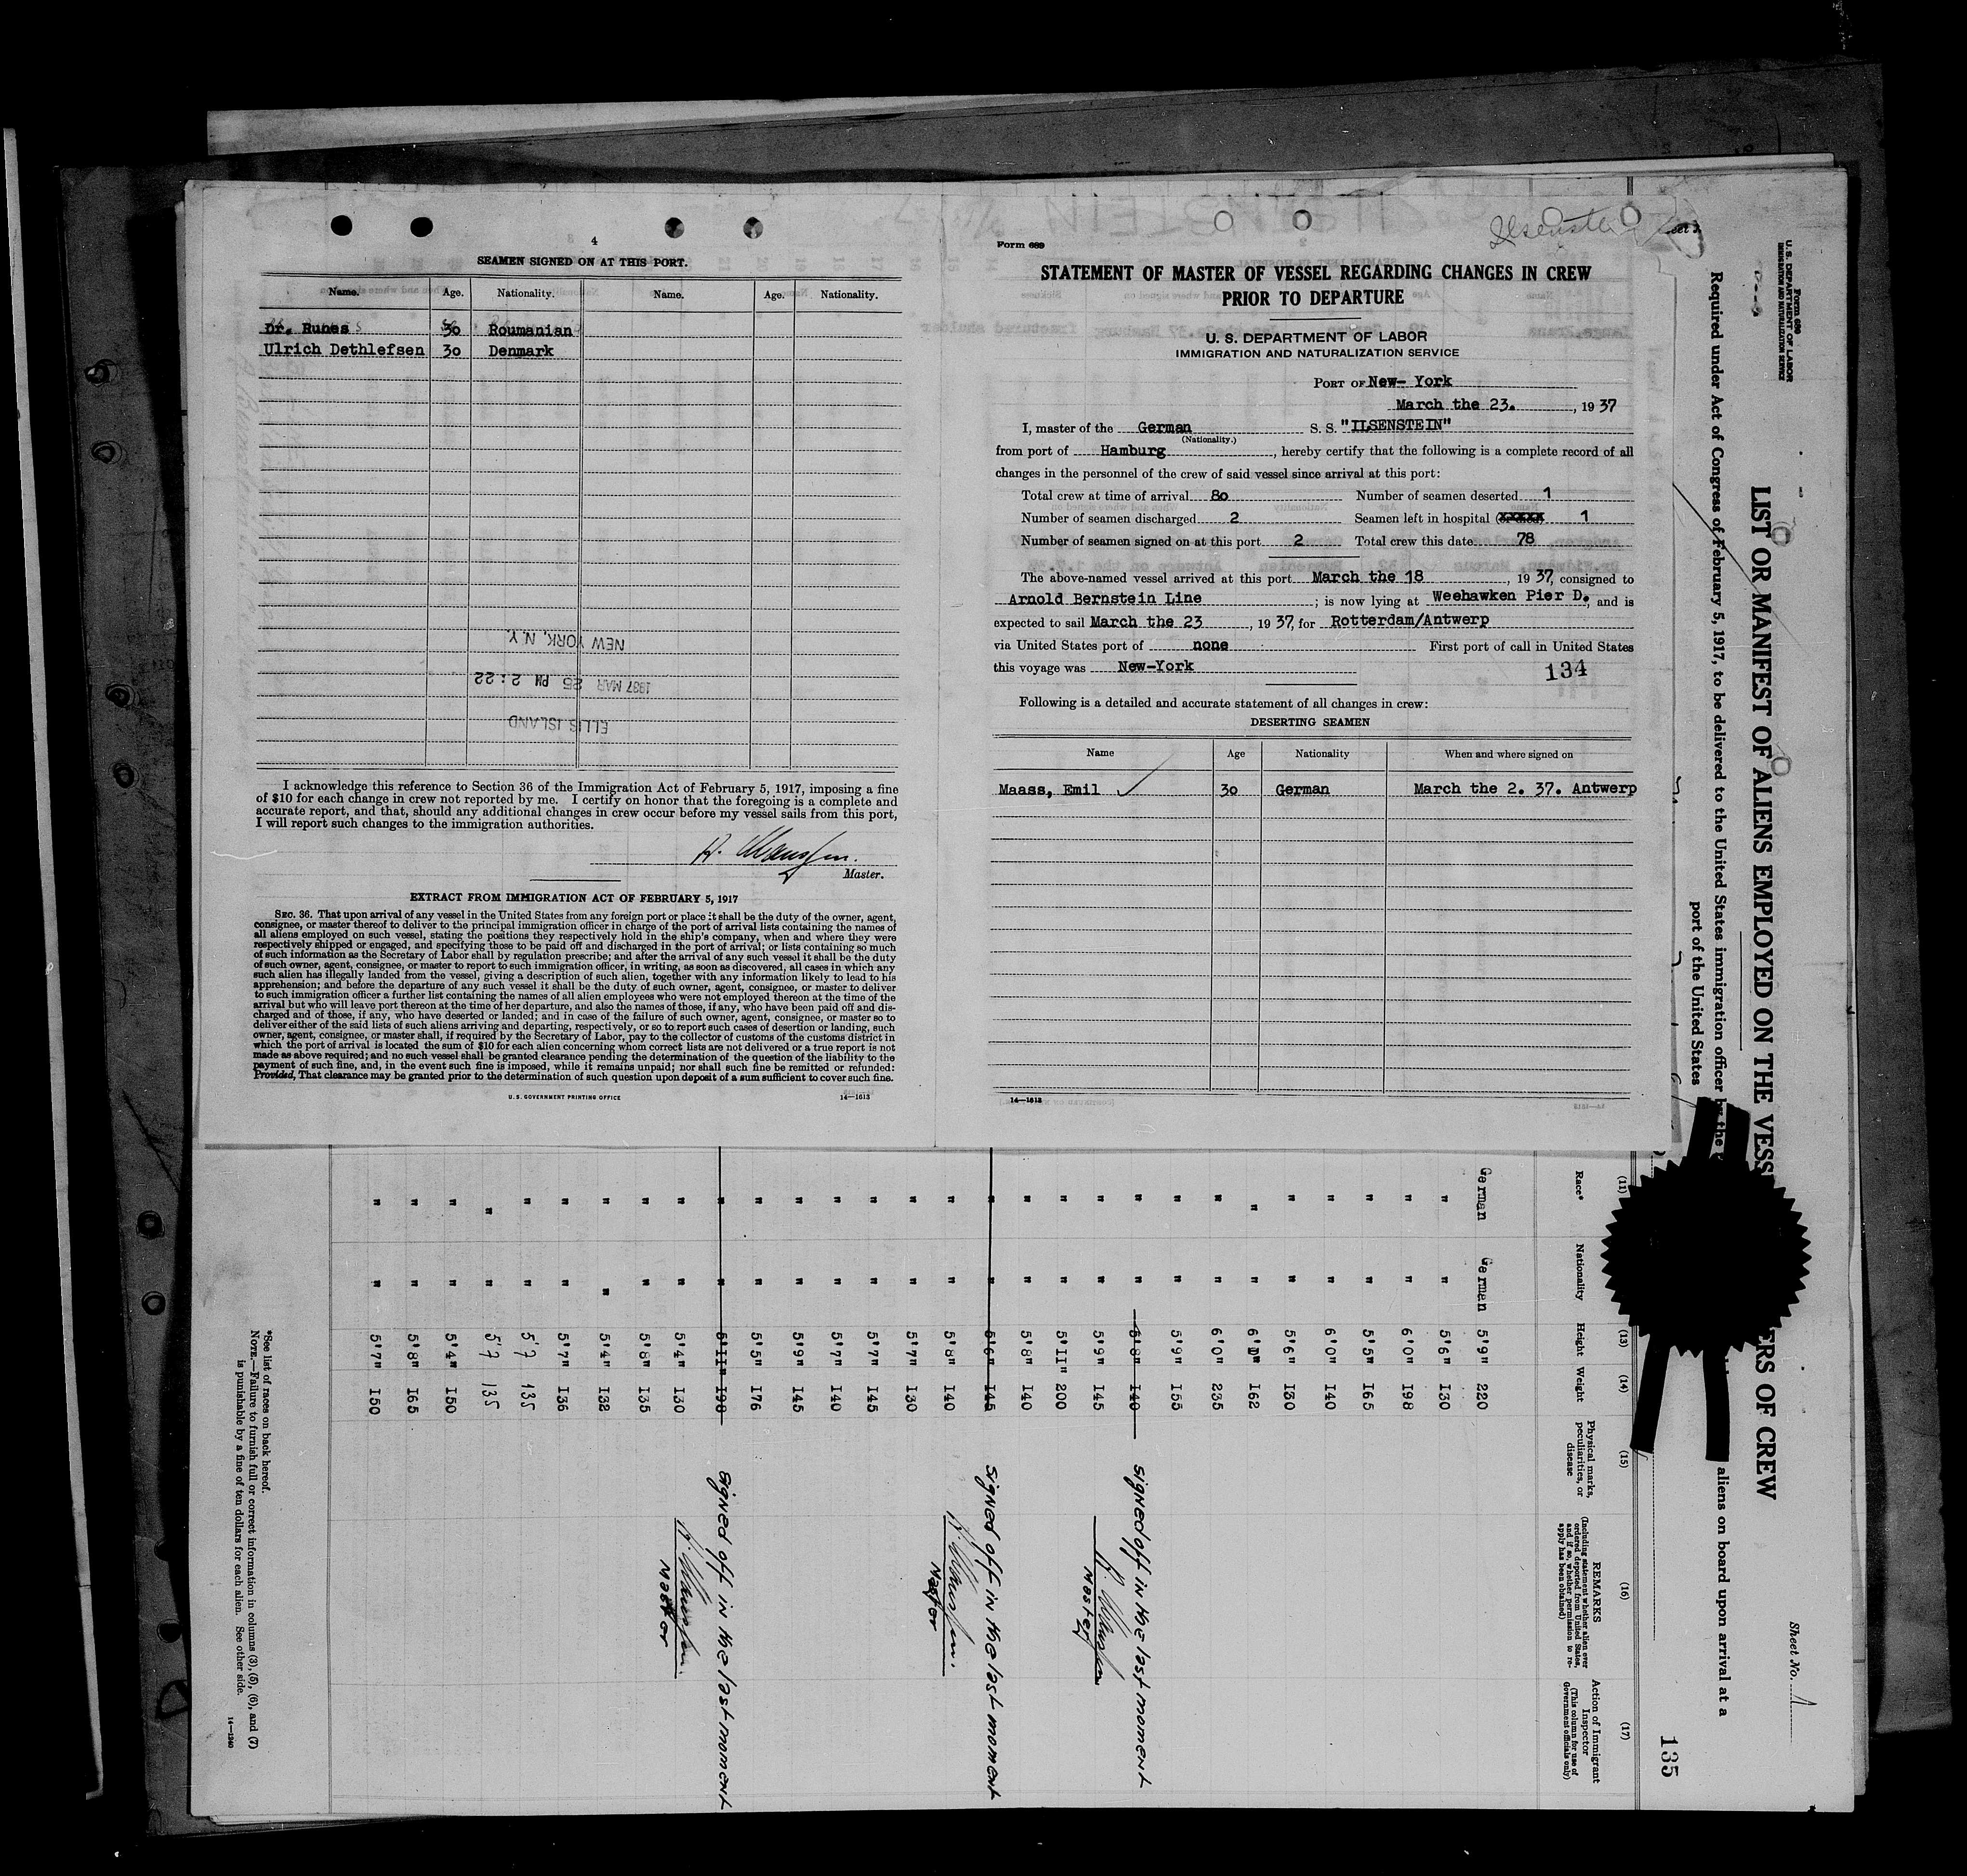 4
SEAMEN SIGNED ON AT THIS PORT.
Name. Age. Nationality. Name. Age. Nationality.
Dr. Runes 30 Roumanian
Ulrich Dethlefsen 30 Denmark
NEW YORK, N.Y.
1937 MAR 25 PM 2:22
ELLIS ISLAND
I acknowledge this reference to Section 36 of the Immigration Act of February 5, 1917, imposing a fine
of $10 for each change in crew not reported by me. I certify on honor that the foregoing is a complete and
accurate report, and that, should any additional changes in crew occur before my vessel sails from this port,
I will report such changes to the immigration authorities.
Master.
EXTRACT FROM IMMIGRATION ACT OF FEBRUARY 5, 1917
SEC. 36. That upon arrival of any vessel in the United States from any foreign port or place it shall be the duty of the owner, agent,
consignee, or master thereof to deliver to the principal immigration officer in charge of the port of arrival lists containing the names of
all aliens employed on such vessel, stating the positions they respectively hold in the ship's company, when and where they were
respectively shipped or engaged, and specifying those to be paid off and discharged in the port of arrival; or lists containing so much
of such information as the Secretary of Labor shall by regulation prescribe; and after the arrival of any such vessel it shall be the duty
of such owner, agent, consignee, or master to report to such immigration officer, in writing, as soon as discovered, all cases in which any
such alien has illegally landed from the vessel, giving a description of such alien, together with any information likely to lead to his
apprehension; and before the departure of any such vessel it shall be the duty of such owner, agent, consignee, or master to deliver
to such immigration officer a further list containing the names of all alien employees who were not employed thereon at the time of the
arrival but who will leave port thereon at the time of her departure, and also the names of those, if any, who have been paid off and dis-
charged and of those, if any, who have deserted or landed; and in case of the failure of such owner, agent, consignee, or master so to
deliver either of the said lists of such aliens arriving and departing, respectively, or so to report such cases of desertion or landing, such
owner, agent, consignee, or master shall, if required by the Secretary of Labor, pay to the collector of customs of the customs district in
which the port of arrival is located the sum of $10 for each alien concerning whom correct lists are not delivered or a true report is not
made as above required; and no such vessel shall be granted clearance pending the determination of the question of the liability to the
payment of such fine, and, in the event such fine is imposed, while it remains unpaid; nor shall such fine be remitted or refunded:
Provided, That clearance may be granted prior to the determination of such question upon deposit of a sum sufficient to cover such fine.
U. S. GOVERNMENT PRINTING OFFICE 14—1613
Ilsenstein
Form 689
STATEMENT OF MASTER OF VESSEL REGARDING CHANGES IN CREW
PRIOR TO DEPARTURE
U. S. DEPARTMENT OF LABOR
IMMIGRATION AND NATURALIZATION SERVICE
PORT OF New- York
March the 23. , 19 37
I, master of the German S. S. "ILSENSTEIN"
(Nationality.)
from port of Hamburg, hereby certify that the following is a complete record of all
changes in the personnel of the crew of said vessel since arrival at this port:
Total crew at time of arrival 80 Number of seamen deserted 1
Number of seamen discharged 2 Seamen left in hospital 1
Number of seamen signed on at this port 2 Total crew this date 78
The above-named vessel arrived at this port March the 18, 19 37, consigned to
Arnold Bernstein Line ; is now lying at Weehawken Pier D., and is
expected to sail March the 23, 19 37, for Rotterdam/Antwerp
via United States port of none First port of call in United States
this voyage was New-York
134
Following is a detailed and accurate statement of all changes in crew:
DESERTING SEAMEN
Name Age Nationality When and where signed on
Maass, Emil ✓ 30 German March the 2. 37. Antwerp
14—1613
Form 680
U. S. DEPARTMENT OF LABOR
IMMIGRATION AND NATURALIZATION SERVICE
Sheet No. 1
LIST OR MANIFEST OF ALIENS EMPLOYED ON THE VESS
ERS OF CREW
Required under Act of Congress of February 5, 1917, to be delivered to the United States immigration officer by the
aliens on board upon arrival at a
port of the United States
135
(11) (13) (14) (15) (16) (17)
Race* Nationality Height Weight
Physical marks, peculiarities, or disease
REMARKS
(Including statement whether alien ever ordered deported from United States, and if so, whether permission to re-apply has been obtained)
Action of Immigrant Inspector
(This column for use of Government officials only)
German German 5'9" 220
" " 5'6" 130
" " 6'0" 198
" " 5'5" 165
" " 6'0" 140
" " 5'6" 130
" " 162
" " 6'0" 235
" " 5'9" 155
" " 5'8" 140 signed off in the last moment
" " 5'9" 145
Master
" " 5'11" 200
" " 5'8" 140
" " 5'6" 145 signed off in the last moment
" " 5'8" 140
Master
" " 5'7" 130
" " 5'7" 145
" " 5'7" 140
" " 5'9" 145
" " 5'5" 176
" " 5'11" 190 signed off in the last moment
" " 5'4" 130
Master
" " 5'8" 135
" " 5'4" 132
" " 5'7" 136
" " 5'7 135
" " 5'7 135
" " 5'4" 150
" " 5'8" 165
" " 5'7" 150
*See list of races on back hereof.
NOTE.—Failure to furnish full or correct information in columns (3), (5), (6), and (7)
is punishable by a fine of ten dollars for each alien. See other side.
14—1240